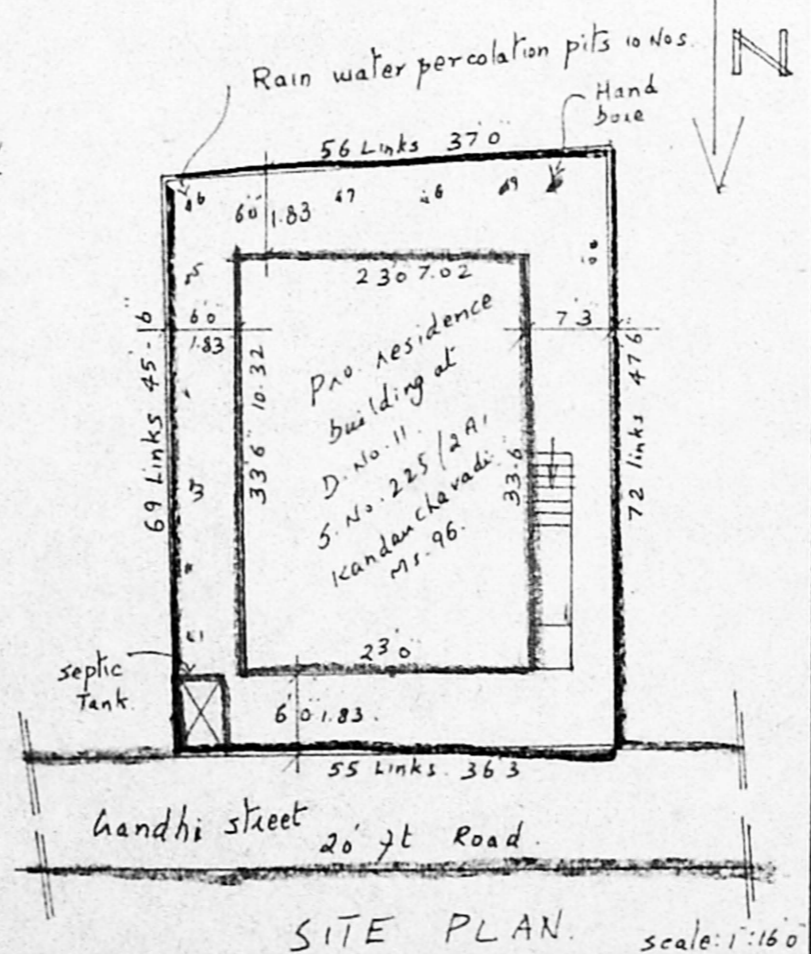 Rain water percolation pits 10 Nos.
N
Hand
bore
56 Links 37'0"
6 7 8 9
6'0" 1.83
10
5
23'0 7.02
6'0
1.83
7'3
69 Links 45'-6"
33'6 10.32
Pro. residence
building at
D. No. 11.
S. No. 225/2A1
Kandanchavadi.
Ms-96.
33'6"
72 links 47'6"
3
1
23'0
septic
Tank.
6'0 1.83.
55 Links. 36'3
Gandhi street
20' ft Road.
SITE PLAN.
scale: 1":16'0"